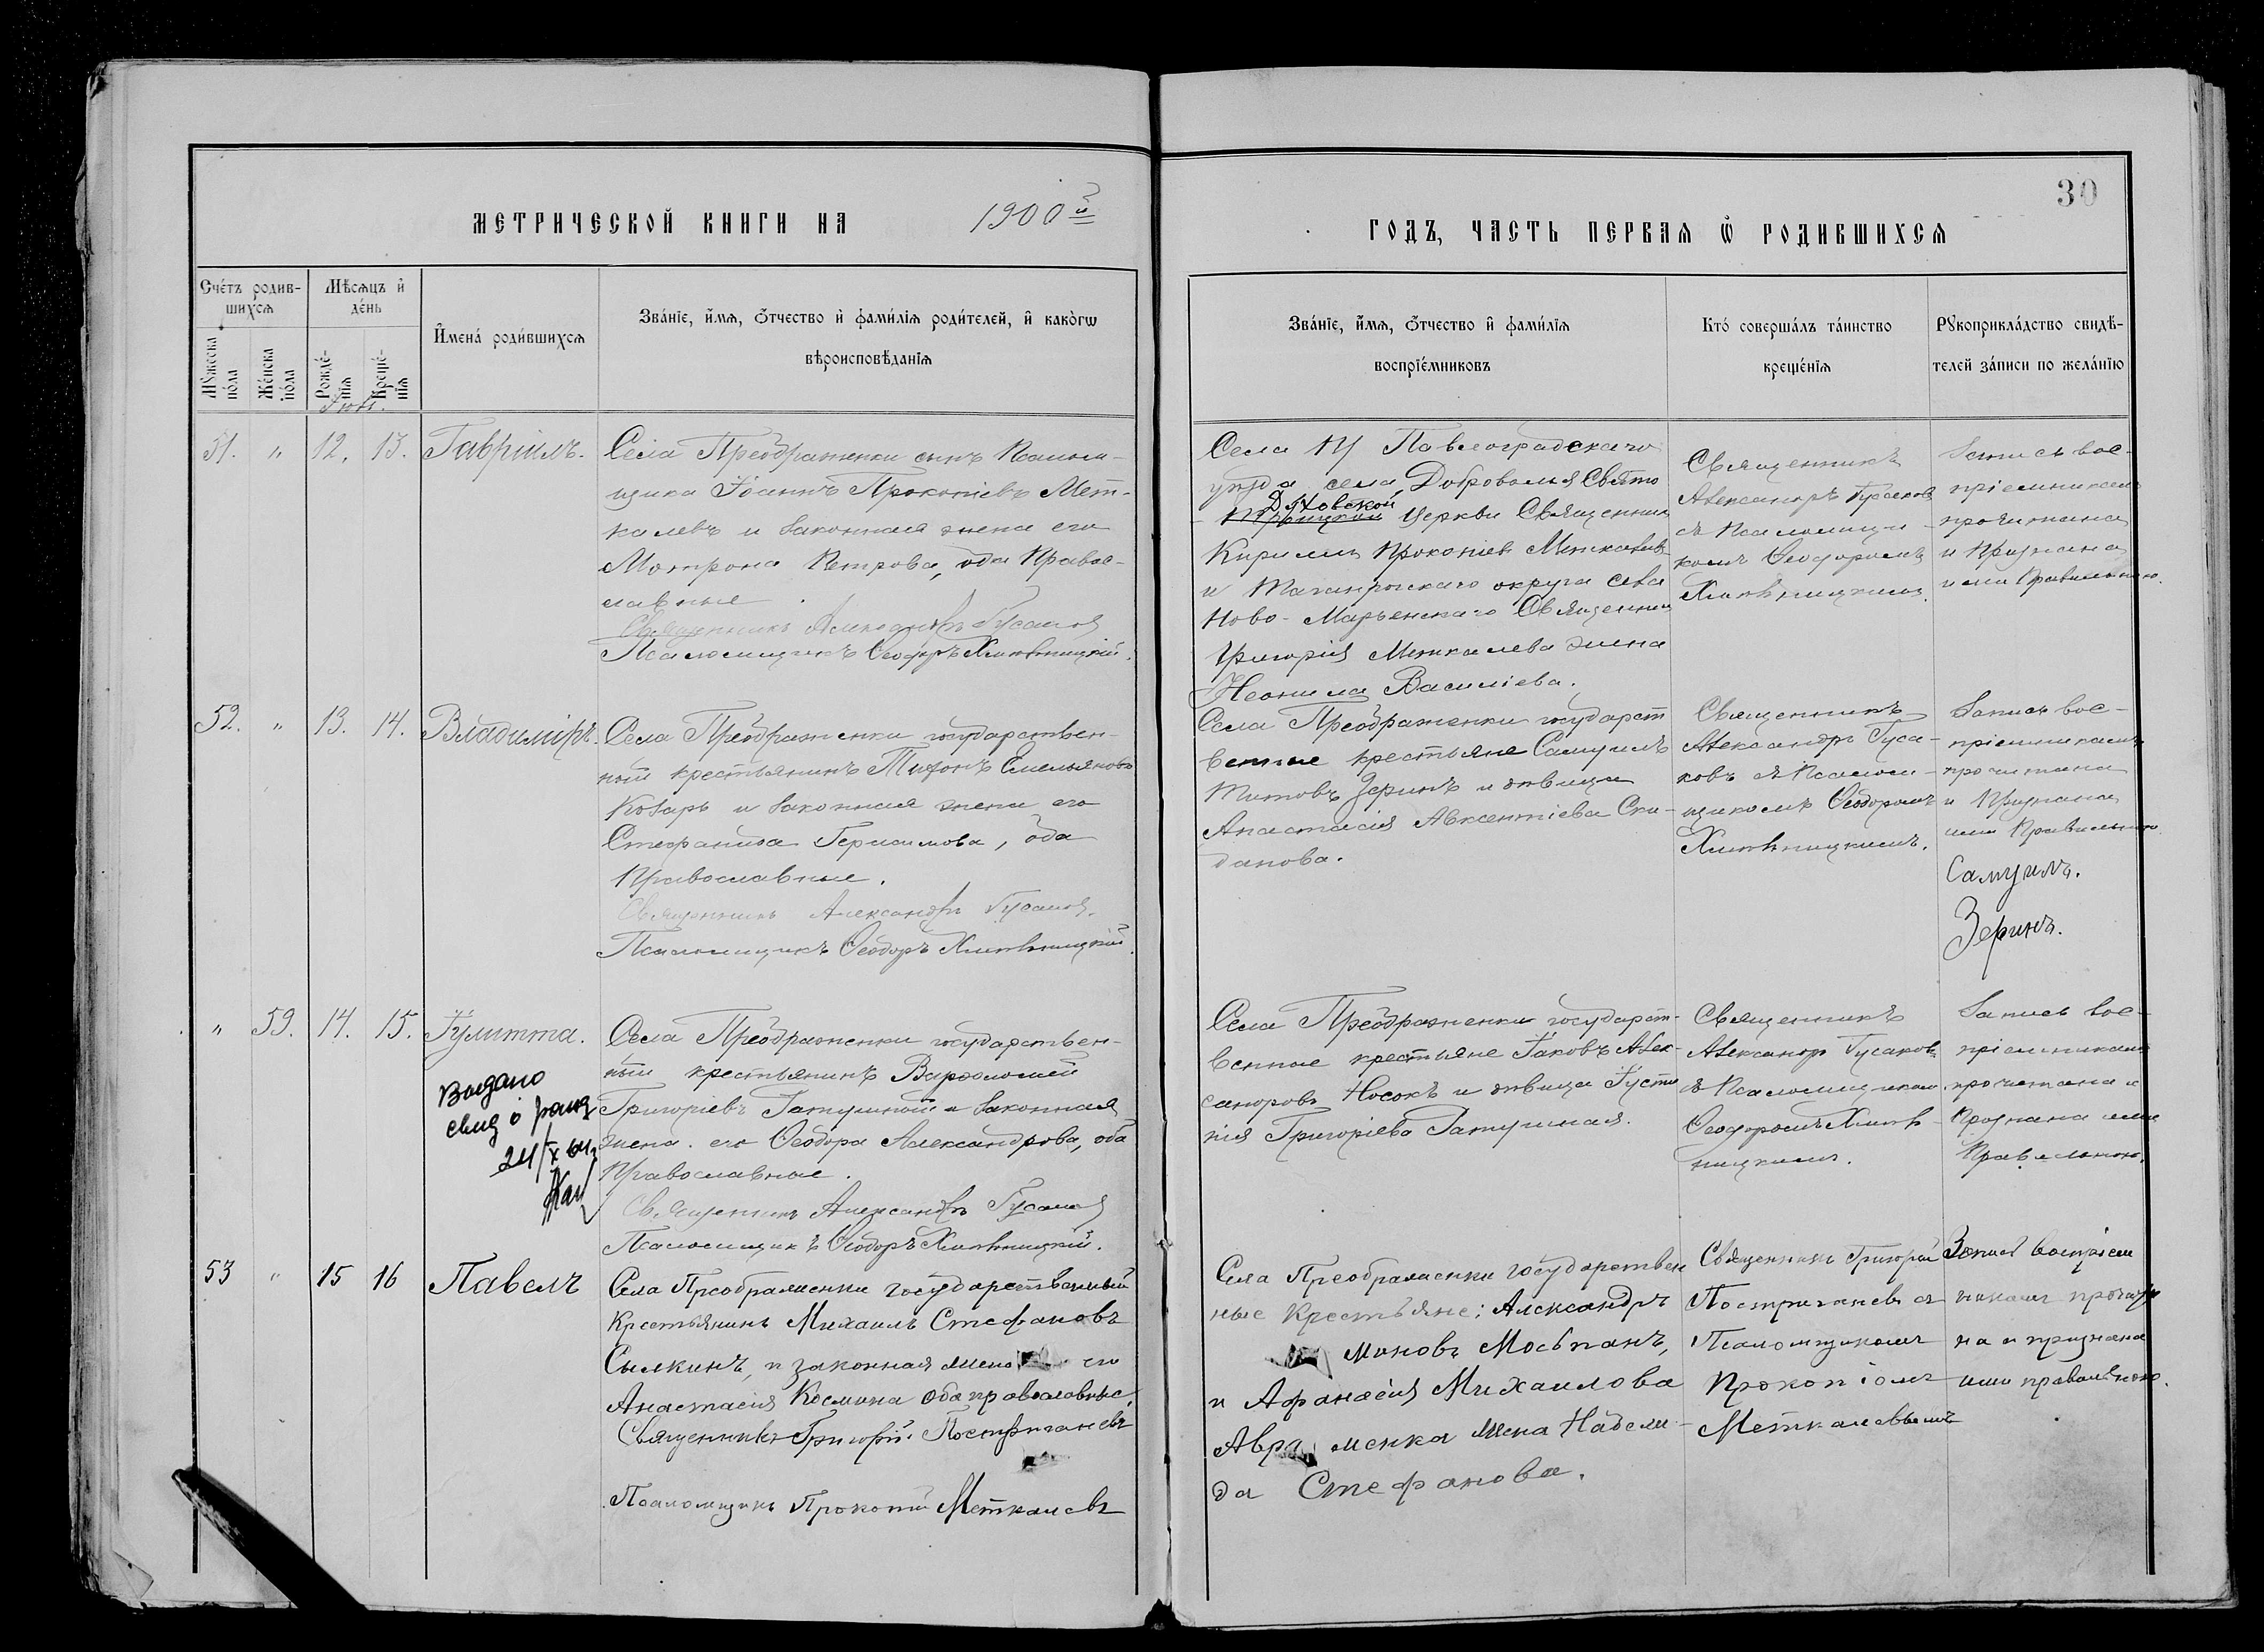 30
МЕТРИЧЕСКОЙ КНИГИ НА 1900й
ГОДЪ, ЧАСТЬ ПЕРВАЯ Ѽ РОДИВШИХСѦ
Сче́тъ родив-
шихсѧ
Мѣсѧцъ и҆
де́нь
И҆мена́ роди́вшихсѧ
Зва́нїе, и҆́мѧ, ѻ҆́тчество и҆ фами́лїѧ роди́телей, и҆ како́гѡ
вѣроисповѣ́данїѧ
Мꙋжеска
по́ла
Же́нска
по́ла
Рожде́-
нїѧ
Креще́-
нїѧ
Зва́нїе, и҆́мѧ, ѻ҆́тчество и҆ фами́лїѧ
воспрїе́мниковъ
Кто́ соверша́лъ та́инство
креще́нїѧ
Рꙋкоприкла́дство свидѣ́-
телей за́писи по жела́нїю
51. " 12. 13. Гавріилъ.
Села Преображенки сынъ Псалом-
щика Іоаннъ Прокопіевъ Мет-
калевъ и законная жена его
Мотрона Петрова, оба Правос-
лавные.
Священникъ Александръ Гусаковъ
Псаломщикъ Ѳеодоръ Хитьницкій.
Павлоградскаго
уѣзда села Доброволья Свято
Духовской
Троицкой Церкви Священник
Кириллъ Прокопіевъ Меткалевъ
и Таганрогскаго округа села
Ново-Марьенскаго Священника
Григорія Меткалева жена
Неонила Василіева.
Священникъ
Александръ Гусаковъ
съ Псаломщи-
комъ Ѳеодоромъ
Запись вос-
пріемникамъ
прочитана
и Признана
ими Правильною.
52. " 13. 14. Владиміръ.
Села Преображенки государствен-
ный крестьянинъ Тихонъ Емельяновъ
Козарь и законная жена его
Стефанида Герасимова, оба
Православные.
Священникъ Александръ Гусаковъ
Псаломщикъ Ѳеодоръ Хитьницкій.
Села Преображенки государст
венные крестьяне Самуилъ
Титовъ Зеринъ и дѣвица
Анастасія Авксентіева Ски-
данова.
Священникъ
Александръ Гуса-
ковъ съ Псалом-
щикомъ Ѳеодоромъ
Запись вос-
пріемникамъ
прочитана
и Признана
ими Правильною
Самуилъ.
Зеринъ.
" 59. 14. 15. Іулитта.
Выдано
24/X
Села Преображенки государствен-
ный крестьянинъ Варѳоломей
Григоріевъ и законная
жена его Ѳеодора Александрова, оба
Православные.
Священникъ Александръ Гусаковъ
Псаломщикъ Ѳеодоръ Хитьницкій.
Села Преображенки государст-
венные крестьяне Іаковъ Алек-
сандровъ Носокъ и дѣвица Іусти
нія Григоріева
Священникъ
Александръ Гусаковъ
съ Псаломщикомъ
Ѳеодоромъ Хить-
ницкимъ.
Запись вос-
пріемникамъ
прочитана и
Признана ими
Правильною.
53 " 15 16 Павелъ
Села Преображенки государственный
Крестьянинъ Михаилъ Стефановъ
Сылкинъ, и законная жена его
Анастасія Космина оба православные
Священникъ Григорій Постригачевъ
Псаломщикъ Прокопій Меткалевъ
Села Преображенки государствен
ные Крестьяне: Александръ
миновъ Мосьпанъ,
и Афанасія Михаилова
Авра менка жена Надеж-
да Стефанова.
Священникъ Григорій
Постригачевъ съ
Псаломщикомъ
Прокопіемъ
Меткалевымъ
Запись воспріем
никамъ прочита
на и признана
ими правильною.